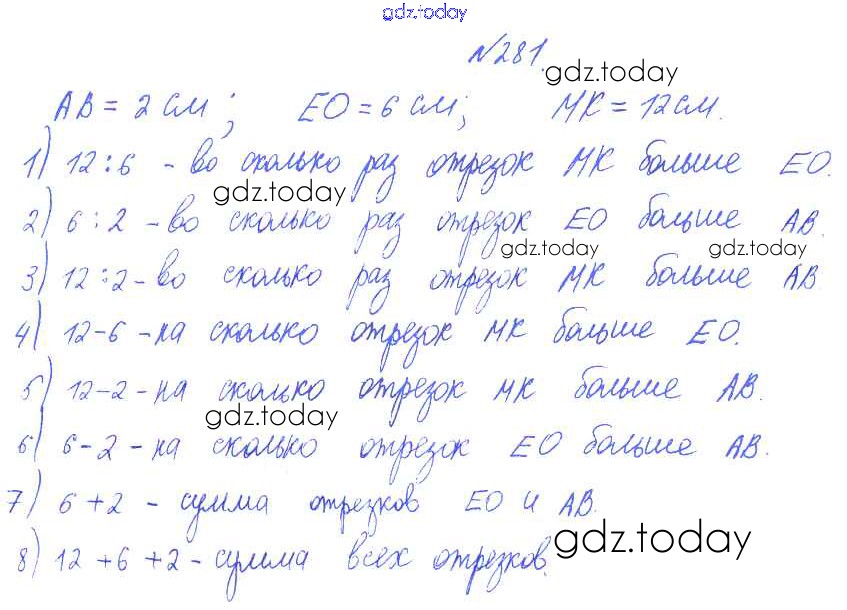 gdz.today
№281.
gdz.today
AB = 2 см; EO = 6 см; MK = 12 см.
1) 12:6 - во сколько раз отрезок MK больше EO.
gdz.today
2) 6:2 - во сколько раз отрезок EO больше AB.
gdz.today gdz.today
3) 12:2 - во сколько раз отрезок MK больше AB
4) 12-6 - на сколько отрезок MK больше EO.
5) 12-2 - на сколько отрезок MK больше AB.
gdz.today
6) 6-2 - на сколько отрезок EO больше AB.
7) 6+2 - сумма отрезков EO и AB.
gdz.today
8) 12+6+2 - сумма всех отрезков.